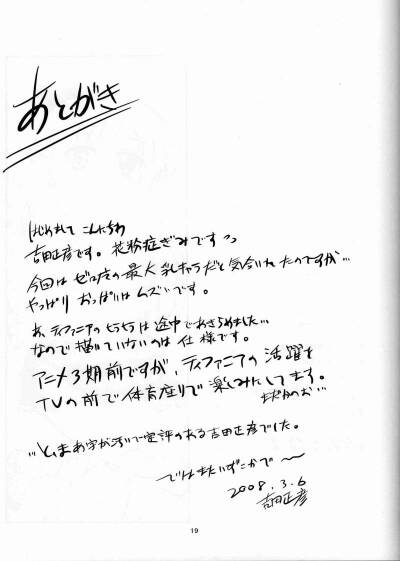 あとがき
はじめまして こんにちわ
吉田正彦です。花粉症ぎみですっっ
今回はゼロ の最大乳キャラだと気合いれたのですが…
やっぱり おっぱいはムズいです。
あ、ティファニアの は途中であきらめました…
なので描いていないのは仕様です。
アニメ3期前ですが、ティファニアの活躍を
TVの前で体育座りで楽しみにしてます。
…と、まあ字が汚いで定評のある吉田正彦でした。
ではまたいずこかで〜
2008.3.6
吉田正彦
19